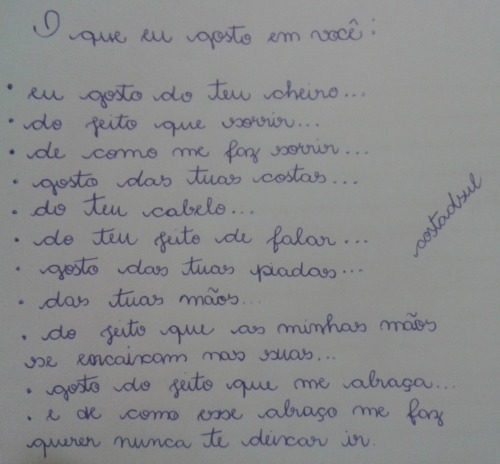 O que eu gosto em você:
• eu gosto do teu cheiro...
• do jeito que sorrir...
• de como me faz sorrir...
• gosto das tuas costas...
• do teu cabelo...
• do teu jeito de falar...
• gosto das tuas piadas...
• das tuas mãos...
• do jeito que as minhas mãos
se encaixam nas suas...
• gosto do jeito que me abraça...
• e de como esse abraço me faz
querer nunca te deixar ir.
costadsul